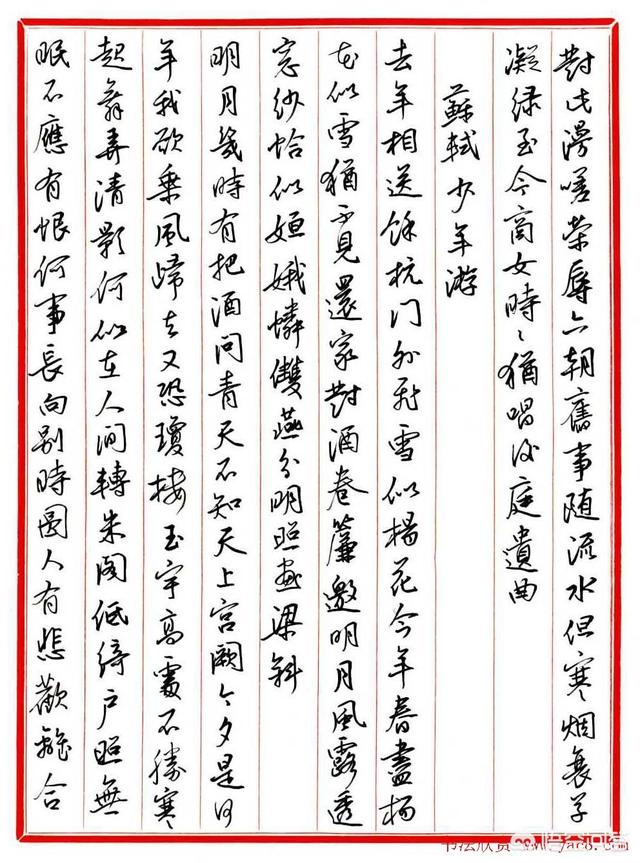 對此漫嗟榮辱六朝舊事隨流水但寒烟衰草
凝绿至今商女時〻猶唱後庭遺曲
蘇軾少年游
去年相送餘杭门外飛雪似楊花今年春盡楊
花似雪猶不見還家對酒卷簾邀明月風露透
窓紗恰似姮娥憐雙燕分明照畫梁斜
明月幾時有把酒问青天不知天上宫阙今夕是何
年我欲乘風歸去又恐瓊楼玉宇高處不勝寒
起舞弄清影何似在人间轉朱阁低绮户照無
眠不應有恨何事長向别時圆人有悲歡離合
书法欣赏
悟空问答